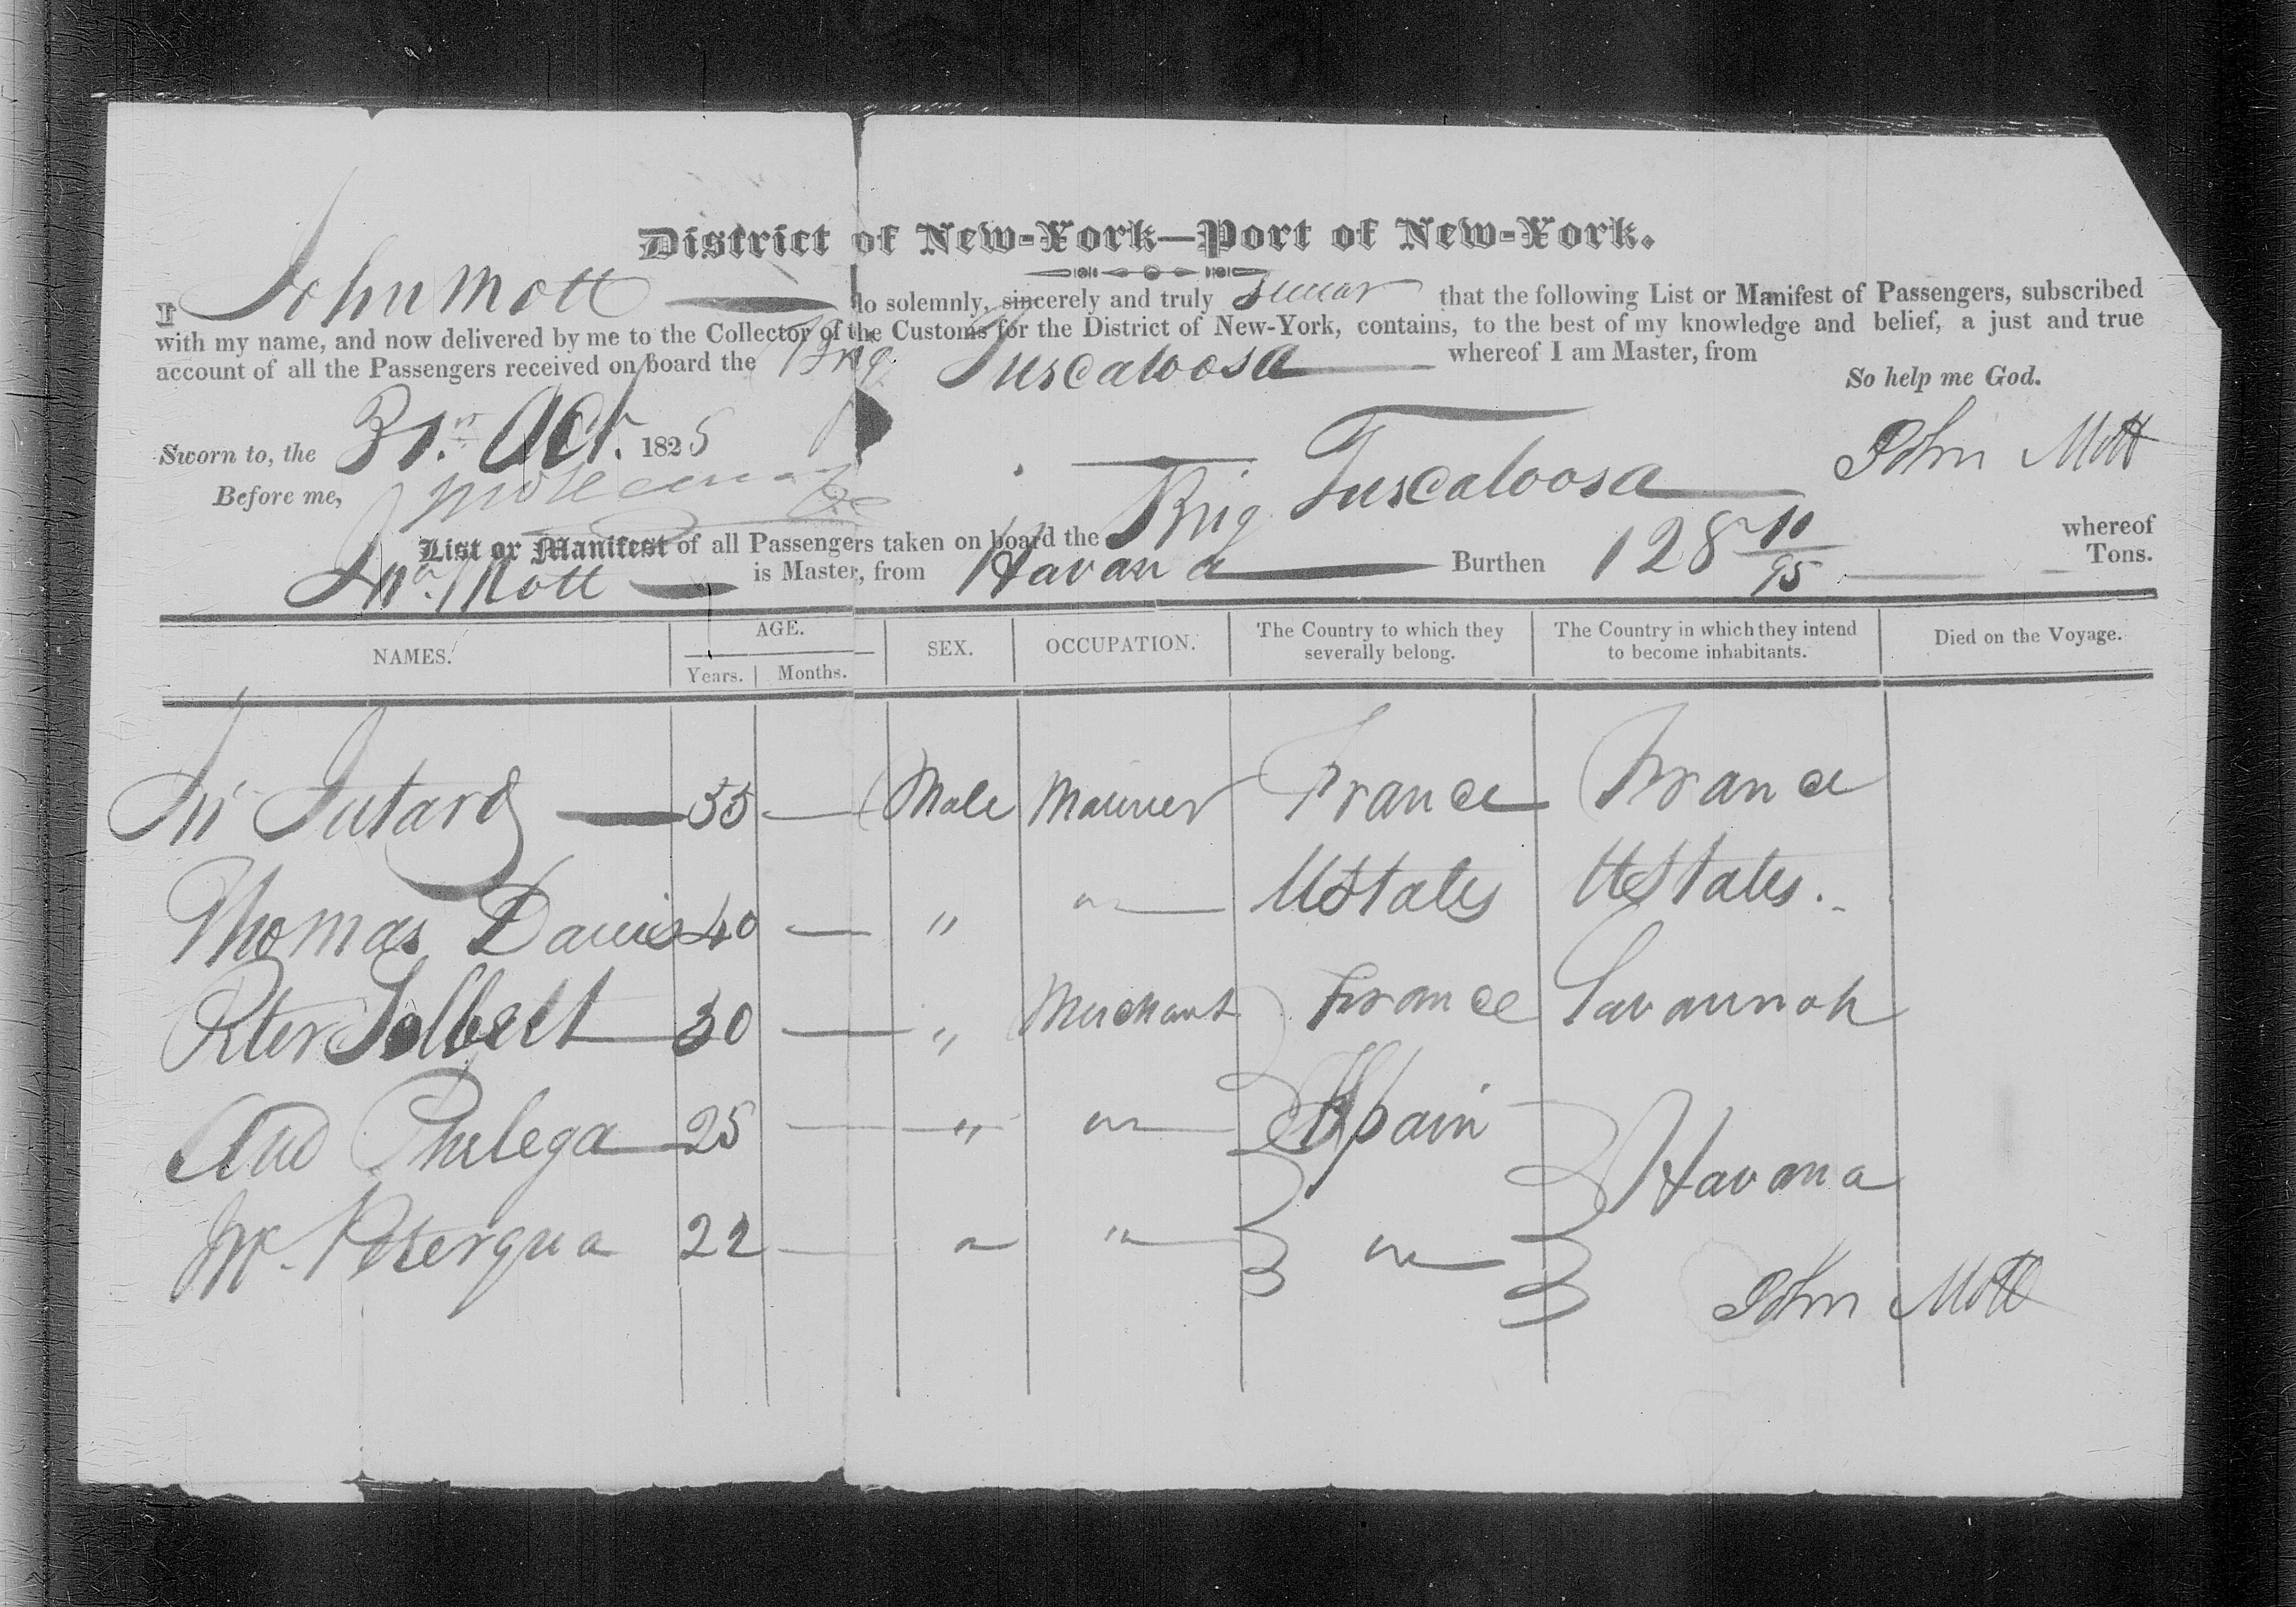 District of New-York—Port of New-York.
I John Mott do solemnly, sincerely and truly swear that the following List or Manifest of Passengers, subscribed
with my name, and now delivered by me to the Collector of the Customs for the District of New-York, contains, to the best of my knowledge and belief, a just and true
account of all the Passengers received on board the Brig Tuscaloosa whereof I am Master, from
So help me God.
Sworn to, the 31st Oct. 1825
John Mott
Before me,
List or Manifest of all Passengers taken on board the Brig Tuscaloosa whereof
Jno. Mott is Master, from Havana Burthen 128 10/95 Tons.
NAMES. AGE. SEX. OCCUPATION. The Country to which they severally belong. The Country in which they intend to become inhabitants. Died on the Voyage.
Years. Months.
Jutard — 55 — Male Mariner France France
Thomas Davis 40 — " " — UStates UStates.
Peter Tolbert 30 — " Merchant France Savannah
Philega 25 — " " — Spain Havana
22 — " " — " —
John Mott